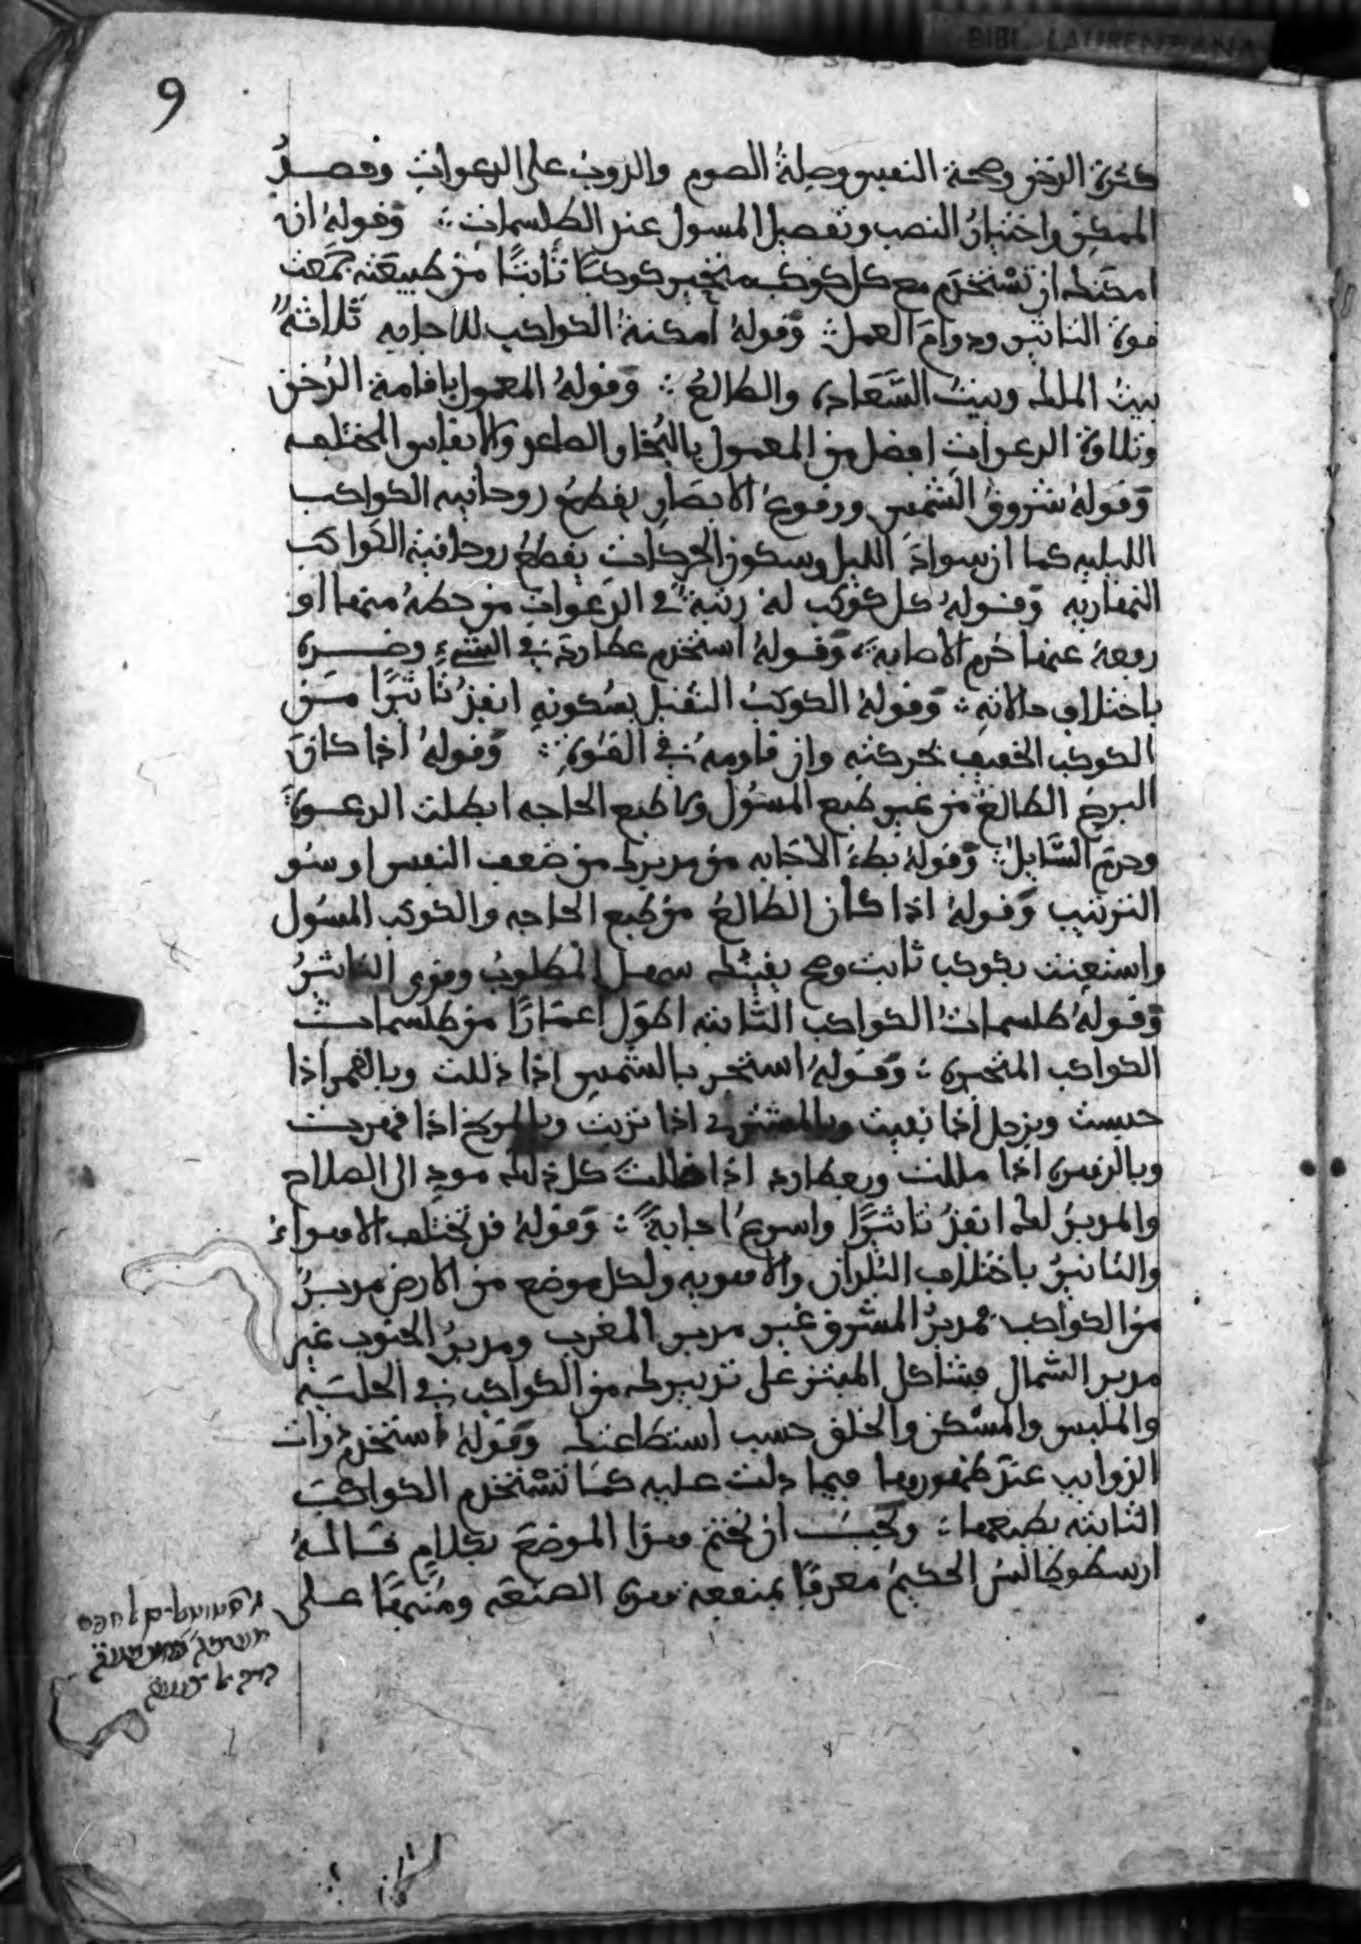 BIBL. LAURENZIANA
9
كثرة الدخن وصحة النفس وصلة الصوم والدوب على الدعوات وفصد
الممكن واختيار النصب وتفصيل المسول عند الطلسمات ∴ وقوله ان
امكنك ان تستخدم مع كل كوكب متحير كوكبا ثابتا من طبيعته جمعت
قوة التاثير ودوام العمل ∴ وقوله امكنة الكواكب للاجابه ثلاثة
بيت الملك وبيت السعادة والطالع ∴ وقوله المعمول باقامة الدخن
وتلاوة الدعوات افضل من المعمول بالبخار والانفاس المختلفه
وقوله شروق الشمس ووقوع الابصار يقطع روحانيه الكواكب
الليليه كما ان سواد الليل وسكون الحركات يقطع روحانية الكواكب
النهاريه وقوله كل كوكب له رتبة في الدعوات من حطه منها او
رفعه عنها حرم الاجابة ∴ وقوله استخدم عطارد في الشيء وضده
باختلاف حالاته ∴ وقوله الكوكب الثقيل بسكونه انفذ تاثيرا من
الكوكب الخفيف بحركته وان قاومه في القوة ∴ وقوله اذا كان
البرج الطالع من غير طبع المسئول ولا طبع الحاجه ابطلت الدعوة
وحرم السايل ∴ وقوله بطء الاجابه من مدبرك من ضعف النفس او سو
الترتيب وقوله اذا كان الطالع من طبع الحاجه والكوكب المسئول
واستعنت بكوكب ثابت وصح يقينك سهل المطلوب وقوي التاثير
وقوله طلسمات الكواكب الثابته اطول اعمارا من طلسمات
الكواكب المتحيره ∴ وقوله استجر بالشمس اذا ذللت وبالقمر اذا
حبست وبزحل اذا نفيت وبالمشتري اذا نزيت وبالمريخ اذا قهرت
وبالزهره اذا مللت وبعطارد اذا ظللت كل ذلك مود الى الصلاح
والمدبر لك انفذ تاثيرا واسرع اجابة ∴ وقوله قد تختلف الاهواء
والتاثير باختلاف البلدان والاهويه ولكل موضع من الارض مدبر
من الكواكب فمدبر المشرق غير مدبر المغرب ومدبر الجنوب غير
مدبر الشمال فشاكل المبتز على تدبيرك من الكواكب في الجلسه
والملبس والمسكن والخلق حسب استطاعتك وقوله استخدم ذوات
الذوايب عند ظهورها فيما دلت عليه كما تستخدم الكواكب
الثابته بطبعها ∴ ويجب ان نختم هذا الموضع بكلام قاله
ارسطوطاليس الحكيم معرفا بمنفعه هذه الصنعه ومنبها على